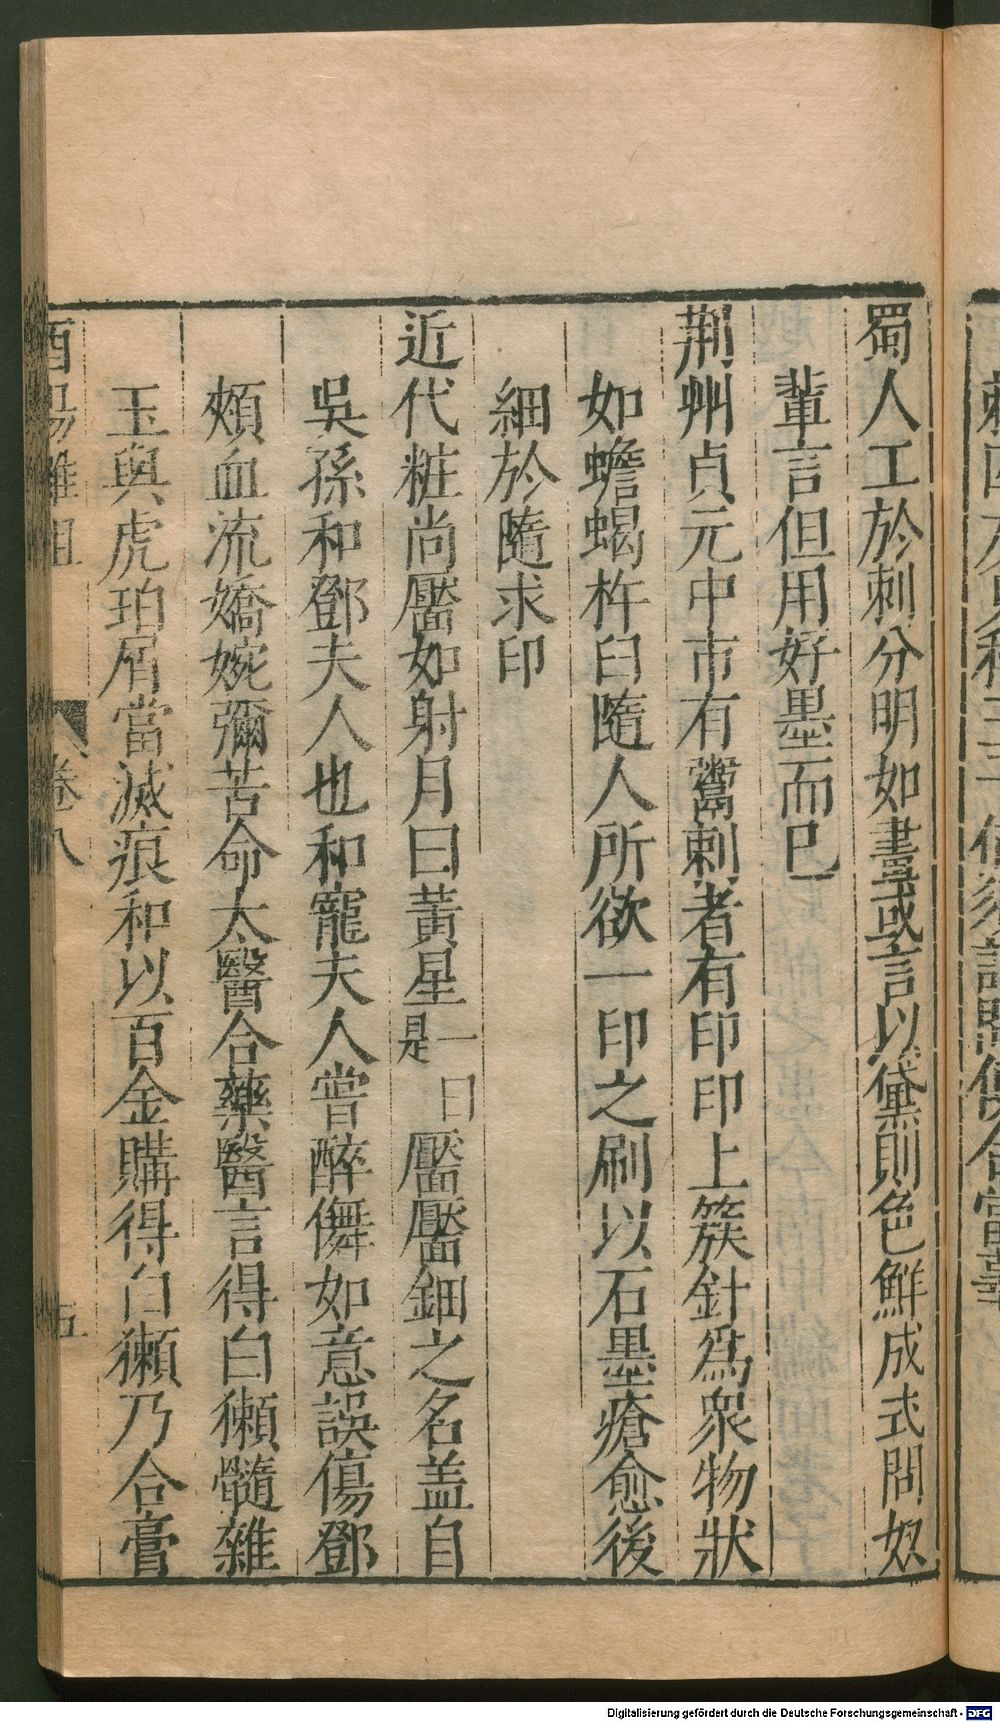 蜀人工於刺分明如畫或言以黛則色鮮成式問奴
輩言但用好墨而已
荆州貞元中市有鬻刺者有印印上簇針爲衆物狀
如蟾蝎杵臼隨人所欲一印之刷以石墨瘡愈後
細於隨求印
近代粧尚靨如射月曰黃星靨靨鈿之名盖自
一曰
是
吳孫和鄧夫人也和寵夫人嘗醉儛如意誤傷鄧
頰血流嬌婉彌苦命太醫合藥醫言得白獺髓雜
玉與虎珀屑當滅痕和以百金購得白獺乃合膏
酉陽雜俎 卷八 五
Digitalisierung gefördert durch die Deutsche Forschungsgemeinschaft - DFG